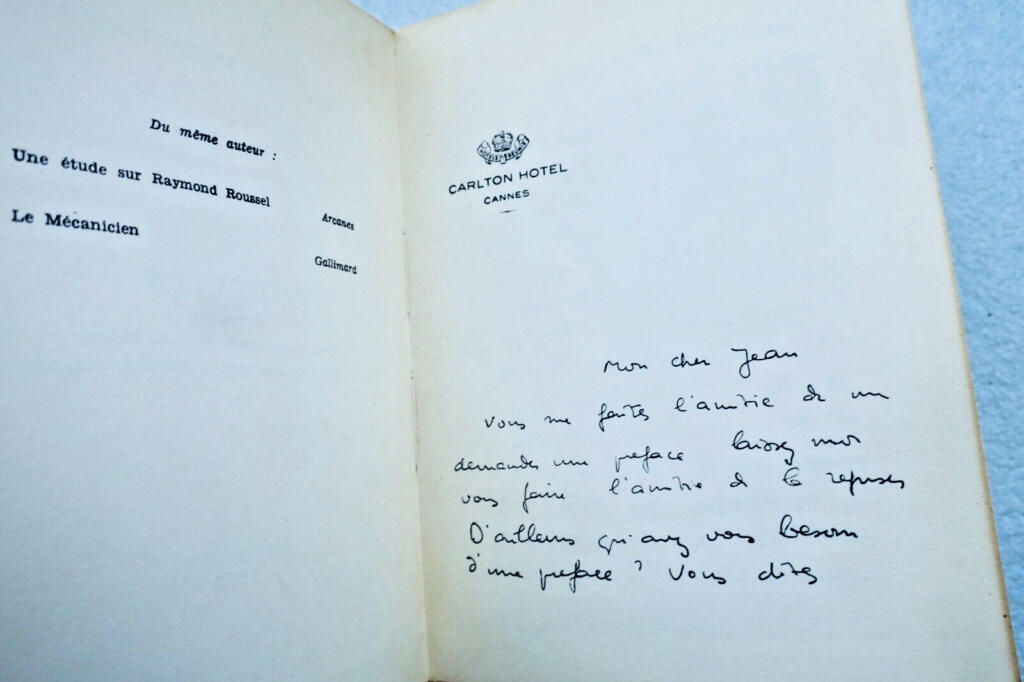 Du même auteur :
Une étude sur Raymond Roussel
Arcanes
Le Mécanicien
Gallimard
CARLTON HOTEL
CANNES
Mon cher Jean
Vous me faites l'amitié de me
demander une preface laissez moi
vous faire l'amitié de la refuser
D'ailleurs qu'avez vous besoin
d'une preface ? Vous dites